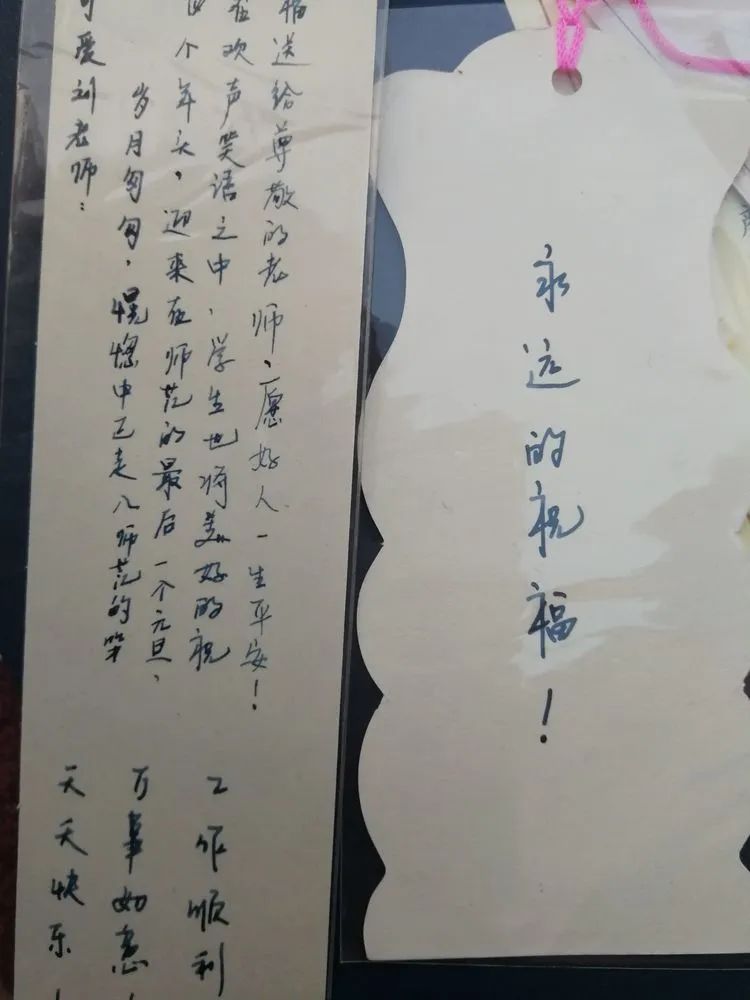 可爱刘老师:
岁月匆匆,幌惚中已走入师范的第
四个年头,迎来在师范的最后一个元旦,
在欢声笑语之中,学生也将美好的祝
福送给尊敬的老师,愿好人一生平安!
天天快乐!
万事如意!
工作顺利
永远的祝福!